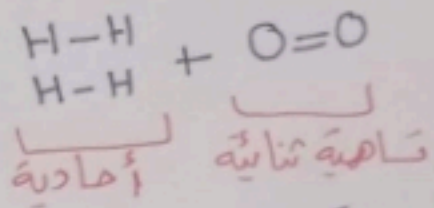 H-H + O=O
H-H
أحادية تساهمية ثنائية